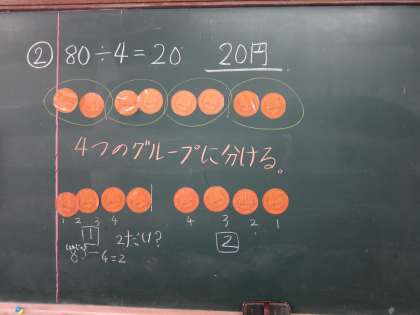 ② 80÷4=20 20円
4つのグループに分ける。
1 2 3 4 4 3 2 1
1 2だけ? 2
8 4=2